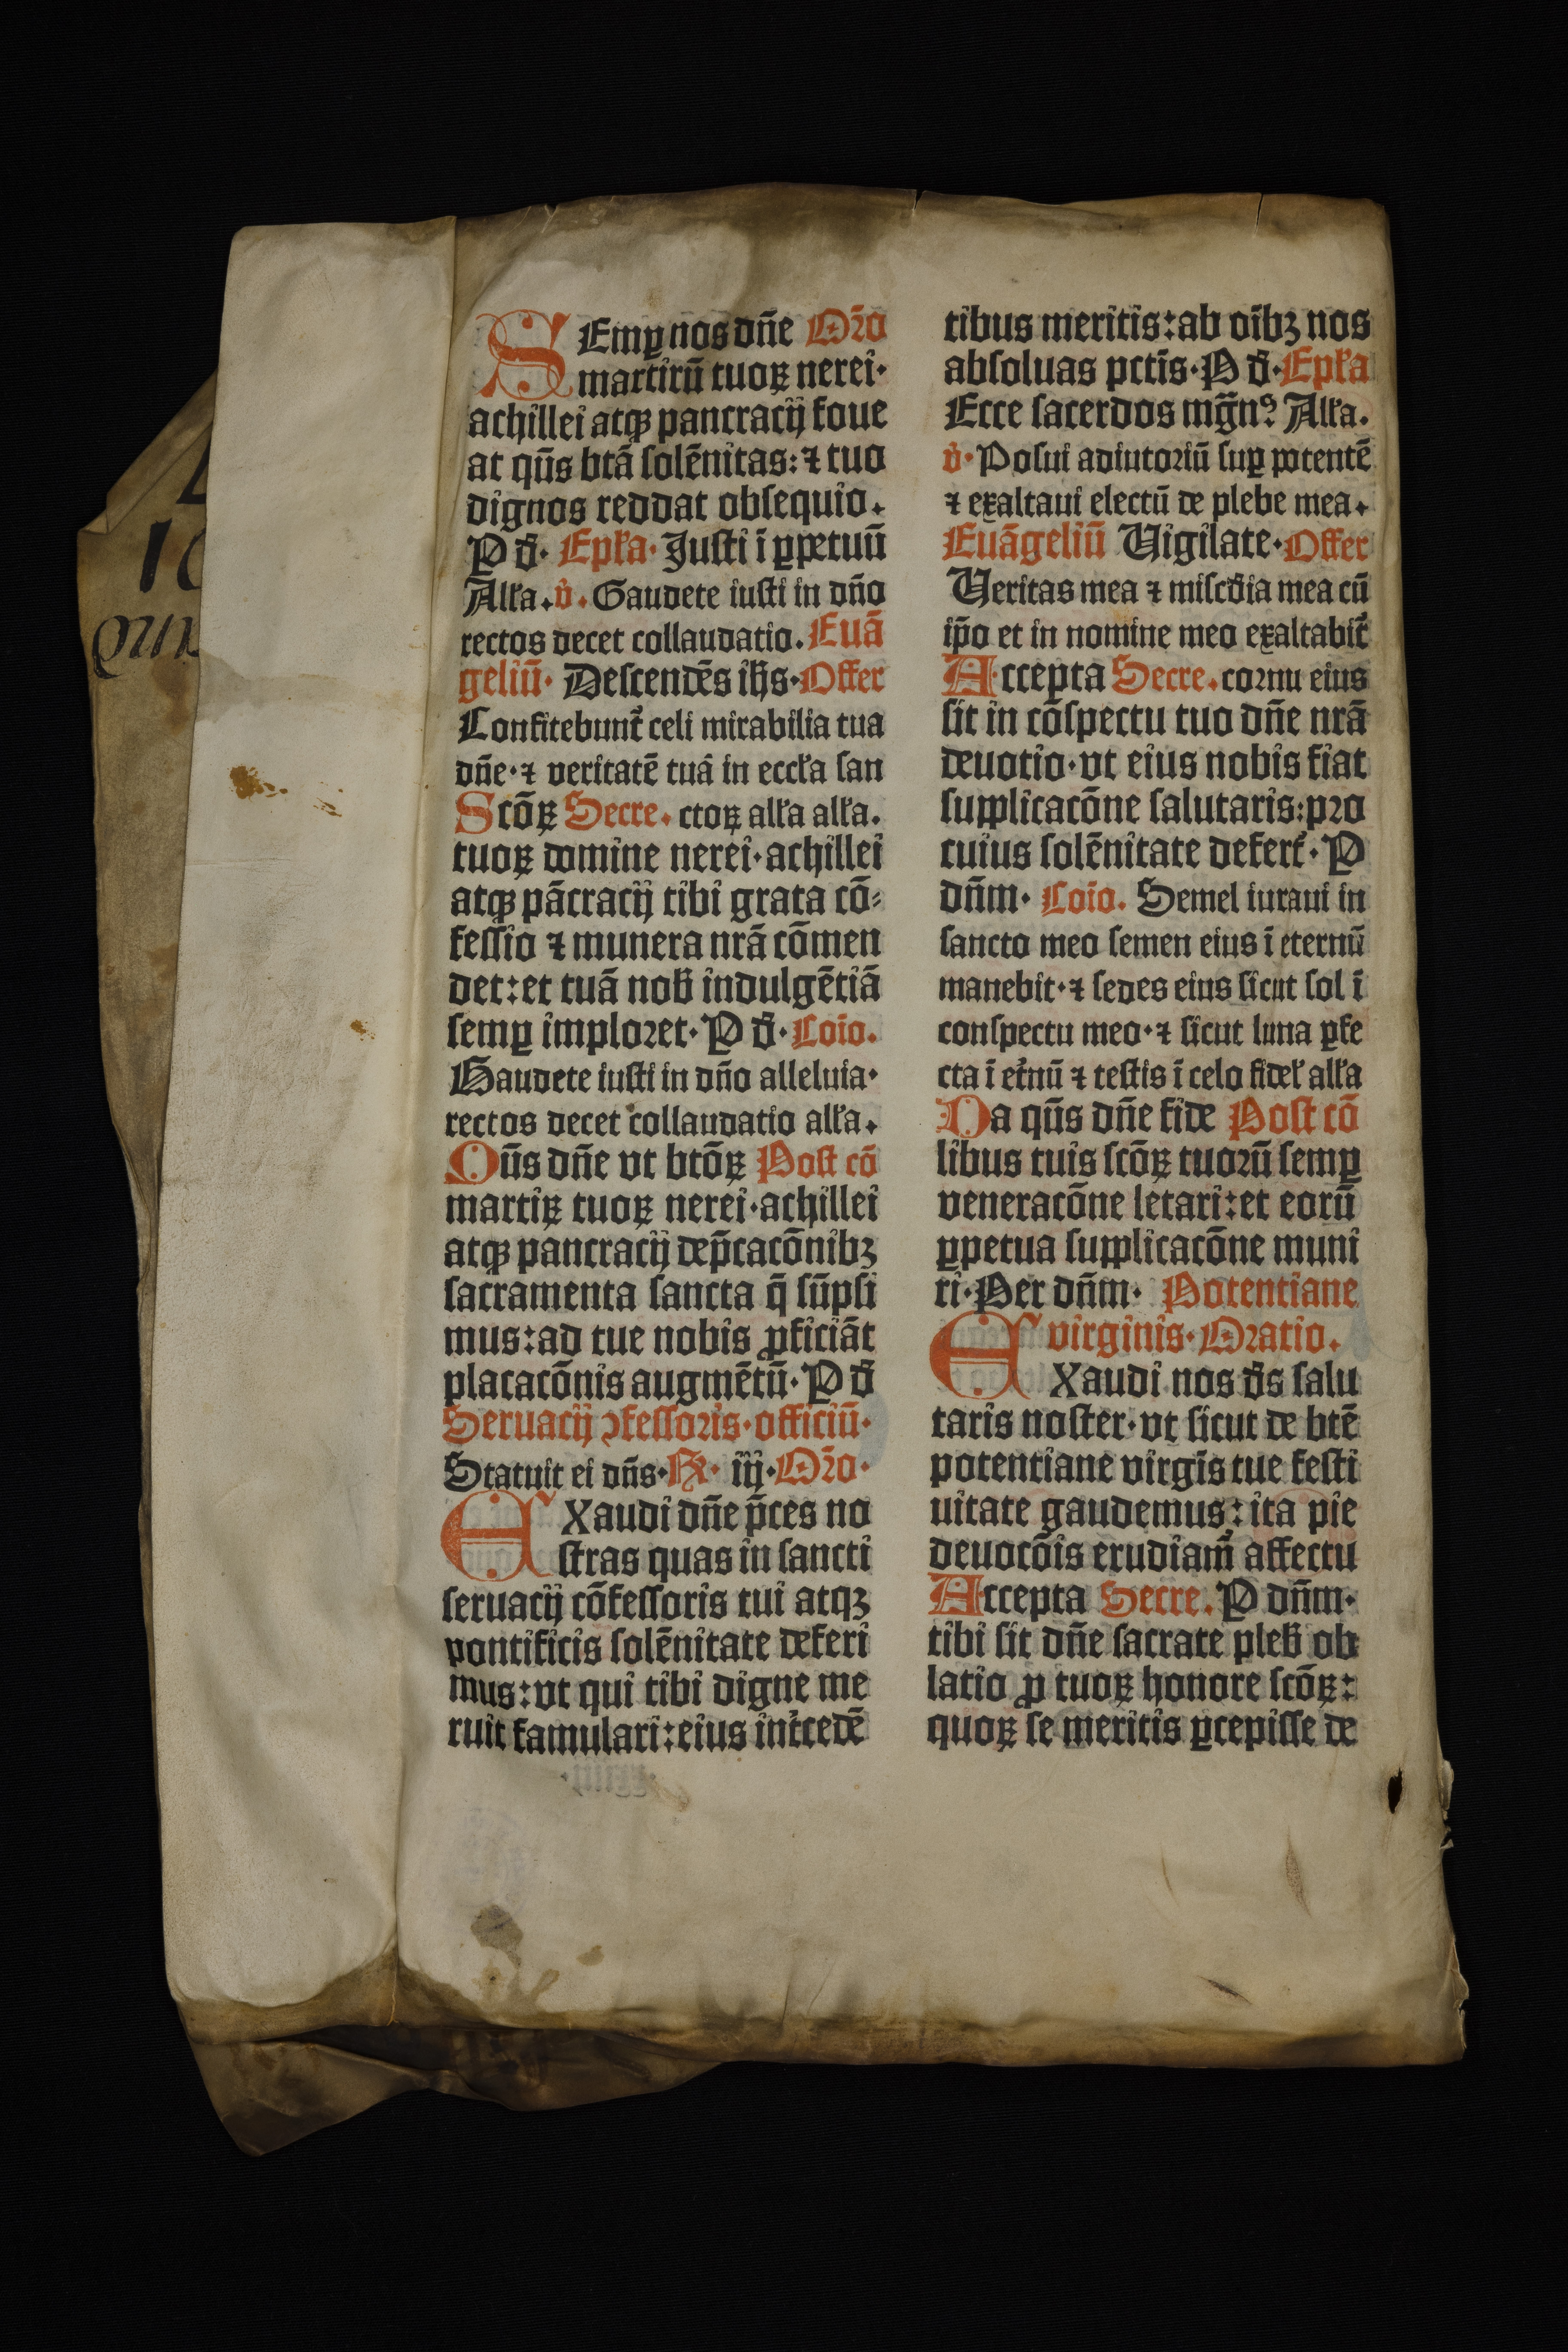 SEmꝑ nos dn̄e Or̄o
martirū tuoꝝ nerei·
achillei atqꝫ pancracij foue
at qūs btā solēnitas: ⁊ tuo
dignos reddat obsequio.
P d̄· Ep̄ła· Justi ī ꝑpetuū
Alła. v̇. Gaudete iusti in dn̄o
rectos decet collaudatio. Euā
geliū· Descendēs ih̄s· Offer
Confitebunt᷑ celi mirabilia tua
dn̄e· ⁊ veritatē tuā in eccła san
Scōꝝ Secre. ctoꝝ alła alła.
tuoꝝ domine nerei· achillei
atqꝫ pācracij tibi grata cō⸗
fessio ⁊ munera nrā cōmen
det: et tuā nob̄ indulgētiā
semꝑ imploret· P d̄· Cōio.
Gaudete iusti in dn̄o alleluia·
rectos decet collaudatio alła.
Qūs dn̄e vt btōꝝ Post cō
martiꝝ tuoꝝ nerei· achillei
atqꝫ pancracij dep̄cacōnibꝫ
sacramenta sancta q̄ sūpsi
mus: ad tue nobis ꝓficiāt
placacōnis augmētū· P d̄
Seruacij ꝯfessoris· officiū·
Statuit ei dn̄s· R̷· iij· Or̄o·
EXaudi dn̄e p̄ces no
stras quas in sancti
seruacij cōfessoris tui atqꝫ
pontificis solēnitate deferi
mus: vt qui tibi digne me
ruit famulari: eius int᷑cedē
tibus meritis: ab oībꝫ nos
absoluas pctīs· P d̄· Ep̄ła
Ecce sacerdos mḡnꝰ Alła.
v̇· Posui adiutoriū suꝑ potentē
⁊ exaltaui electū de plebe mea.
Euāgeliū Uigilate· Offer
Ueritas mea ⁊ misc̄dia mea cū
ip̄o et in nomine meo exaltabit᷑
Accepta Secre. cornu eius
sit in cōspectu tuo dn̄e nrā
deuotio· vt eius nobis fiat
supplicacōne salutaris: pro
cuius solēnitate defert᷑· P
dn̄m· Cōio. Semel iuraui in
sancto meo semen eius ī eternū
manebit· ⁊ sedes eius sicut sol ī
conspectu meo· ⁊ sicut luna ꝑfe
cta ī et᷑nū ⁊ testis ī celo fidel̄ alła
Da qūs dn̄e fide Post cō
libus tuis scōꝝ tuorū semꝑ
veneracōne letari: et eorū
ꝑpetua supplicacōne muni
ri· Per dn̄m· Potentiane
virginis· Oratio.
EXaudi nos d̄s salu
taris noster· vt sicut de btē
potentiane virgīs tue festi
uitate gaudemus: ita pie
deuocōis erudiam᷑ affectu
Accepta Secre. P dn̄m·
tibi sit dn̄e sacrate pleb̄ ob
latio ꝓ tuoꝝ honore scōꝝ:
quoꝝ se meritis ꝑcepisse de